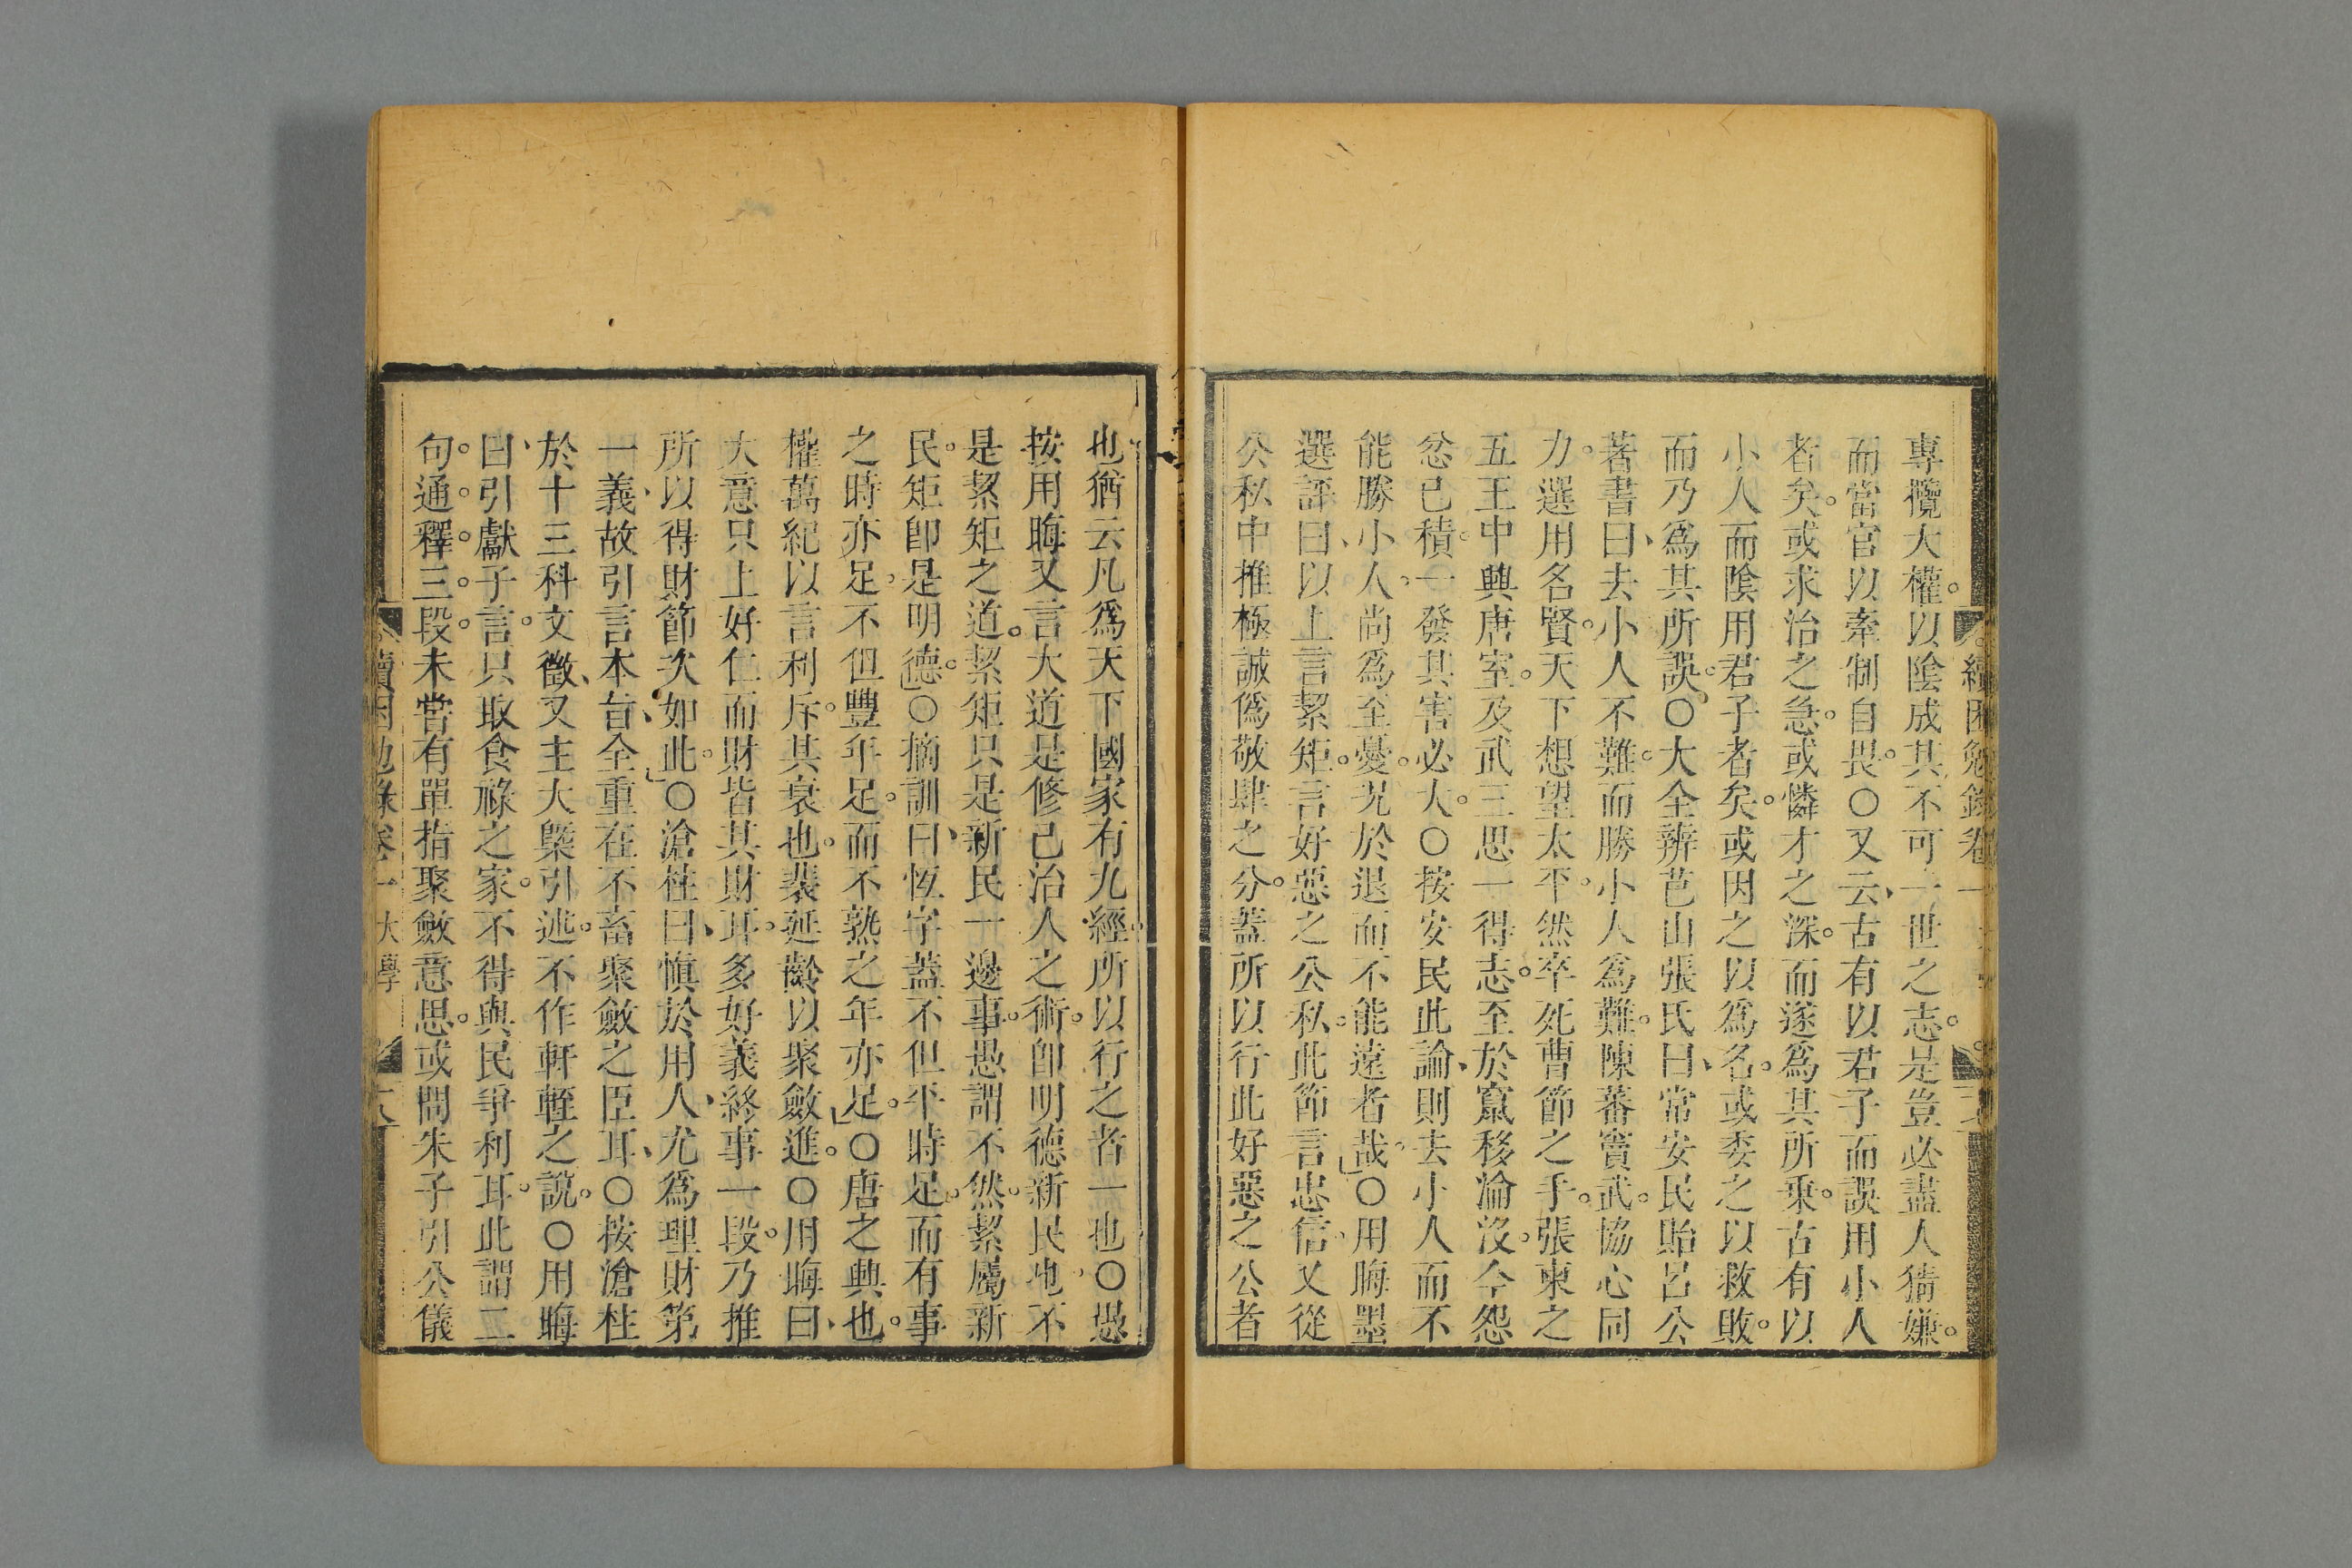 專攬大權。以陰成其不可一世之志。是豈必盡人猜嫌。
而當官以牽制自畏。○又云、古有以君子而誤用小人
者矣。或求治之急。或憐才之深。而遂爲其所乘。古有以
小人而陰用君子者矣。或因之以爲名。或委之以救敗。
而乃爲其所誤。○大全辨芑山張氏曰、常安民貽呂公
著書曰、去小人不難。而勝小人爲難。陳蕃竇武。協心同
力。選用名賢。天下想望太平。然卒死曹節之手。張柬之
五王中興唐室。及武三思一得志。至於竄移淪沒。今怨
忿已積。一發其害必大。○按安民此論、則去小人而不
能勝小人、尚爲至憂。況於退而不能遠者哉。」○用晦墨
選評曰、以上言絜矩。言好惡之公私。此節言忠信、又從
公私中推極誠僞敬肆之分。蓋所以行此好惡之公者
續困勉錄卷一
也猶云凡爲天下國家有九經。所以行之者一也○愚
按用晦又言大道是修己治人之術。卽明德新民也、不
是絜矩之道。絜矩只是新民一邊事。愚謂不然。絜屬新
民。矩卽是明德。」○摘訓曰、恆字蓋不但平時足、而有事
之時亦足、不但豐年足。而不熟之年亦足。」○唐之興也。
權萬紀以言利斥。其衰也。裴延齡以聚斂進。○用晦曰、
大意只上好仁而財皆其財耳。多好義終事一段。乃推
所以得財節次如此。」○滄柱曰、愼於用人、尤爲理財第
一義、故引言本旨、全重在不畜聚斂之臣耳、○按滄柱
於十三科文徵、又主大槩引述。不作軒輊之說。○用晦
曰、引獻子言。只取食祿之家。不得與民爭利耳。此謂二
句。通。釋。三。段。未嘗有單指聚斂意思。或問朱子引公儀
續困勉錄卷一 大學 六